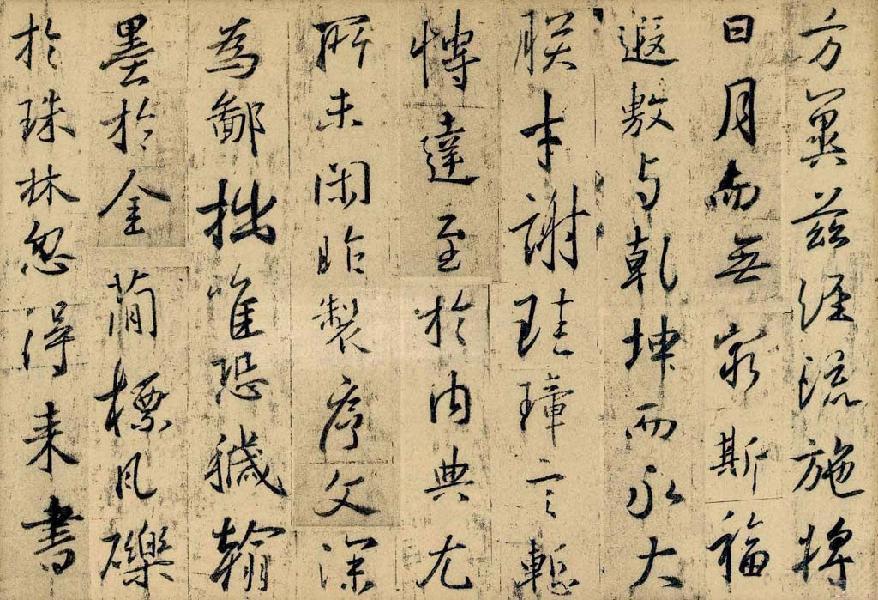 方冀茲經流施將
日月而無窮斯福
遐敷与乾坤而永大
朕才謝珪璋言慙
博達至於內典尤
所未閑昨製序文深
為鄙拙唯恐穢翰
墨於金簡標瓦礫
於珠林忽得來書